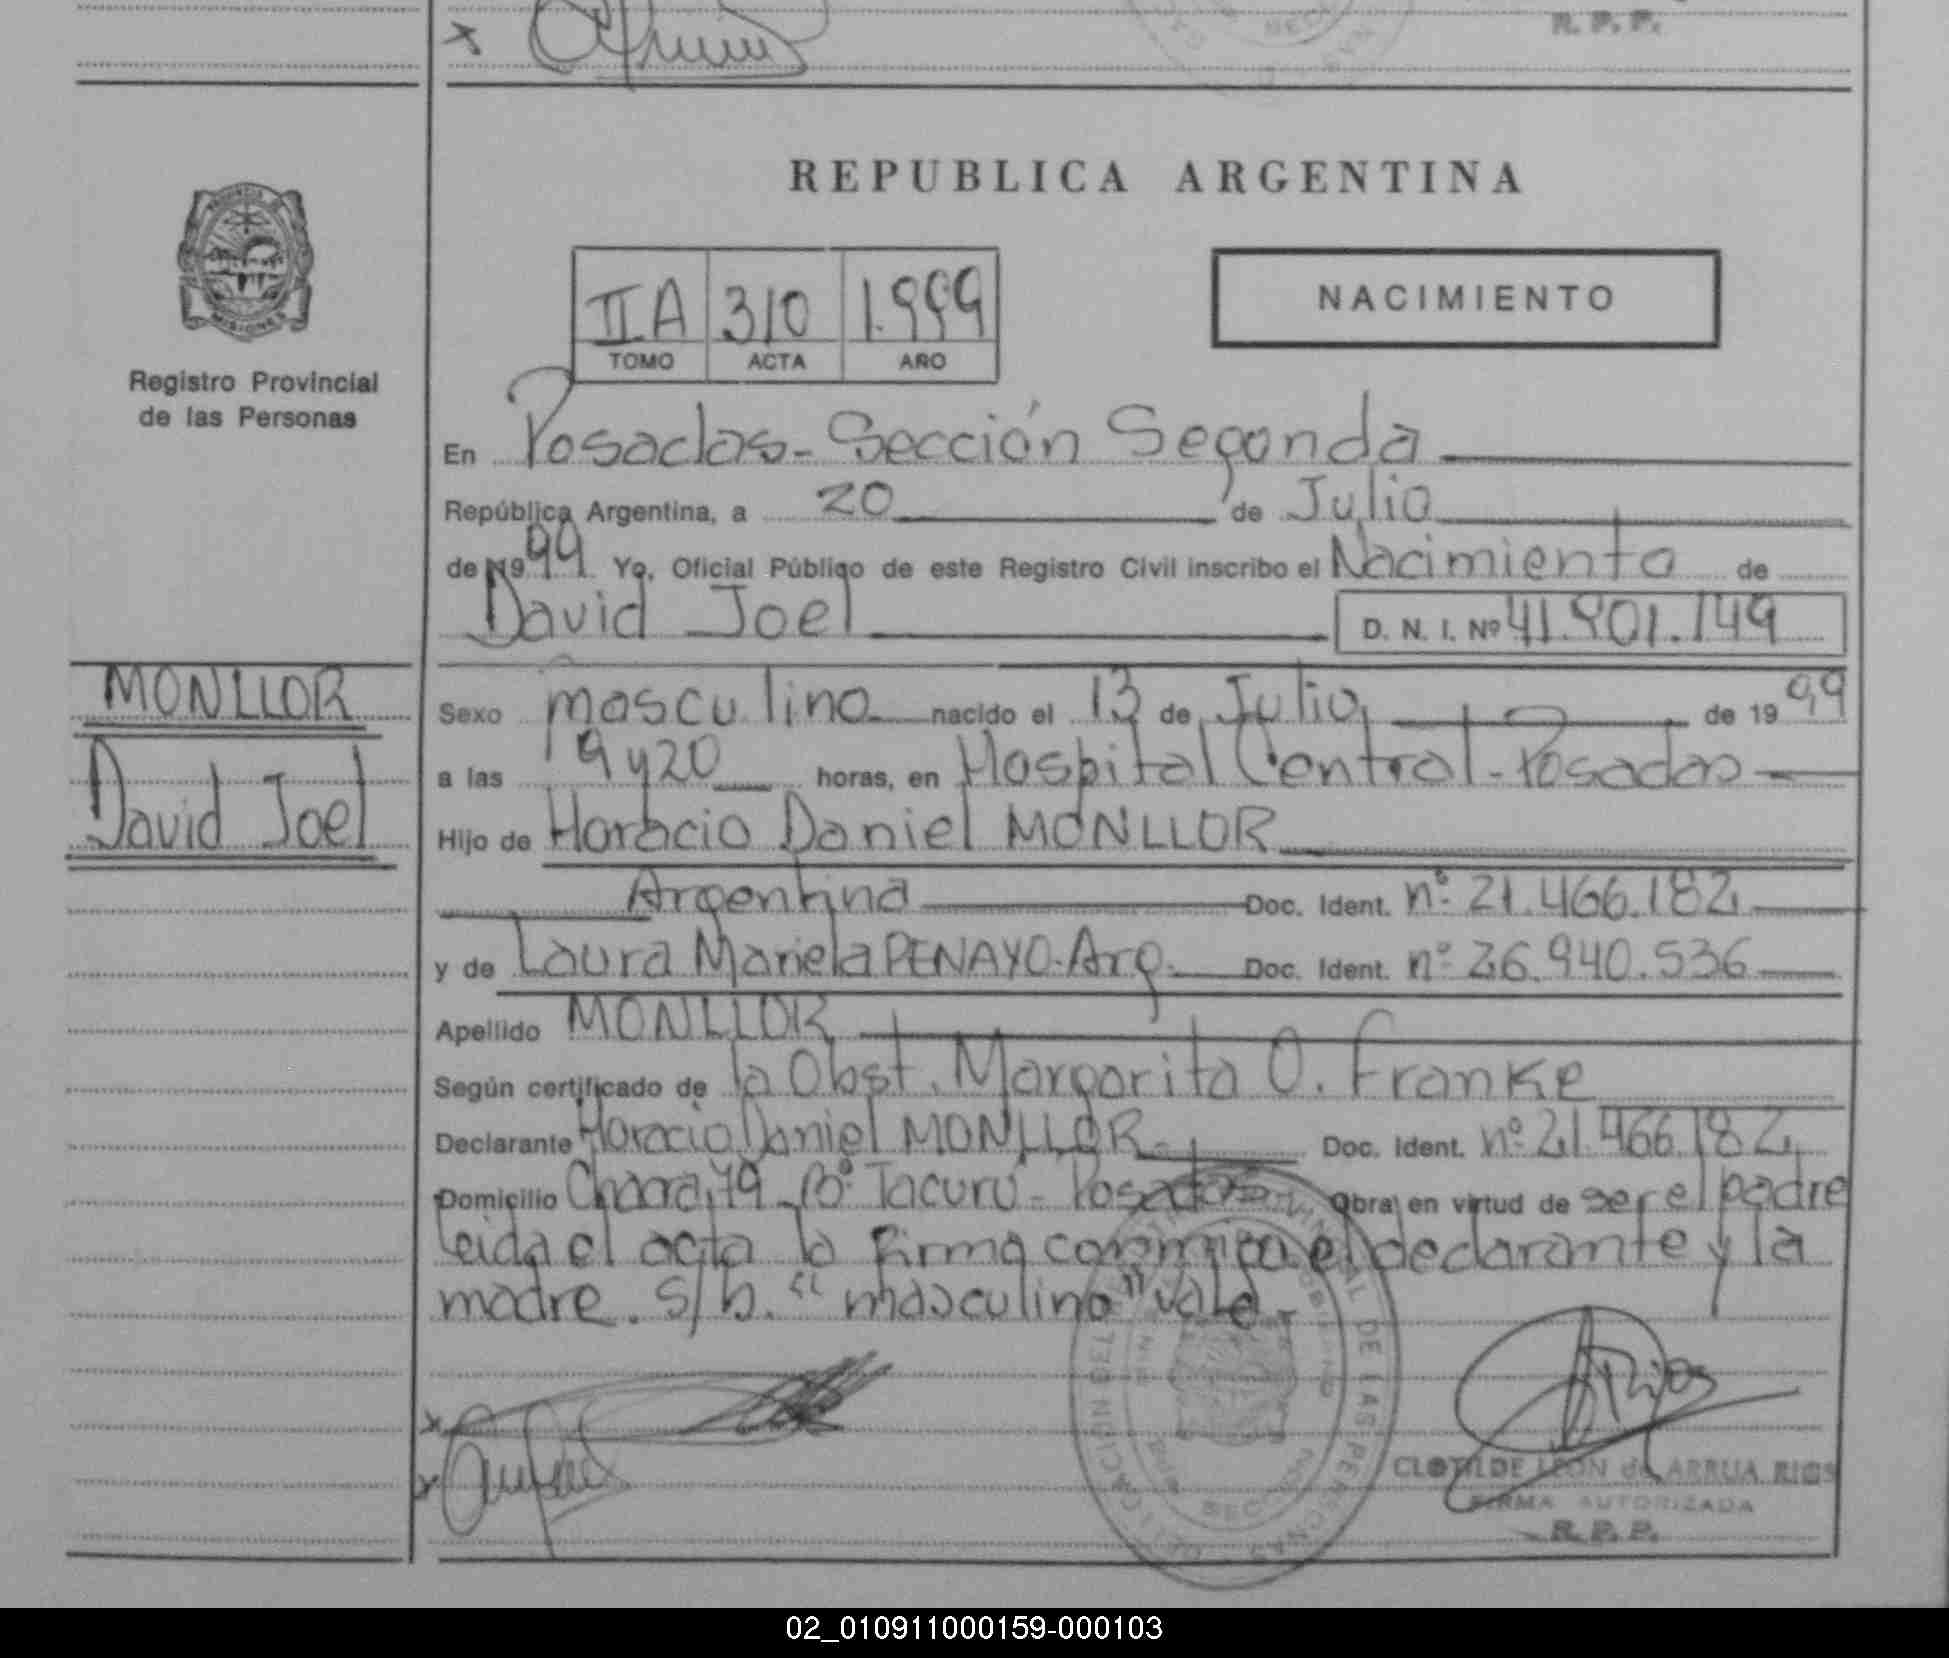 R. P. P.
REPUBLICA ARGENTINA
MISIONES
Registro Provincial
de las Personas
II A 310 1.999
TOMO ACTA AÑO
NACIMIENTO
En Posadas - Sección Segunda
República Argentina, a 20 de Julio
de 1999. Yo, Oficial Público de este Registro Civil inscribo el Nacimiento de
David Joel D. N. I. Nº 41.901.149
MONLLOR
David Joel
Sexo masculino nacido el 13 de Julio de 1999
a las 9 y 20 horas, en Hospital Central - Posadas
Hijo de Horacio Daniel MONLLOR
Argentina Doc. Ident. nº 21.466.182
y de Laura Mariela PENAYO. Arg. Doc. Ident. nº 26.940.536
Apellido MONLLOR
Según certificado de la Obst. Margarita O. Franke
Declarante Horacio Daniel MONLLOR. Doc. Ident. nº 21.466.182
Domicilio Chacra 79 - Bº Tacurú - Posadas - Obra en virtud de ser el padre
Leida el acta la firma conmigo el declarante y la
madre. s/b. "masculino" vale.
CLOTILDE LEON de ARRUA RIOS
FIRMA AUTORIZADA
R. P. P.
02_010911000159-000103